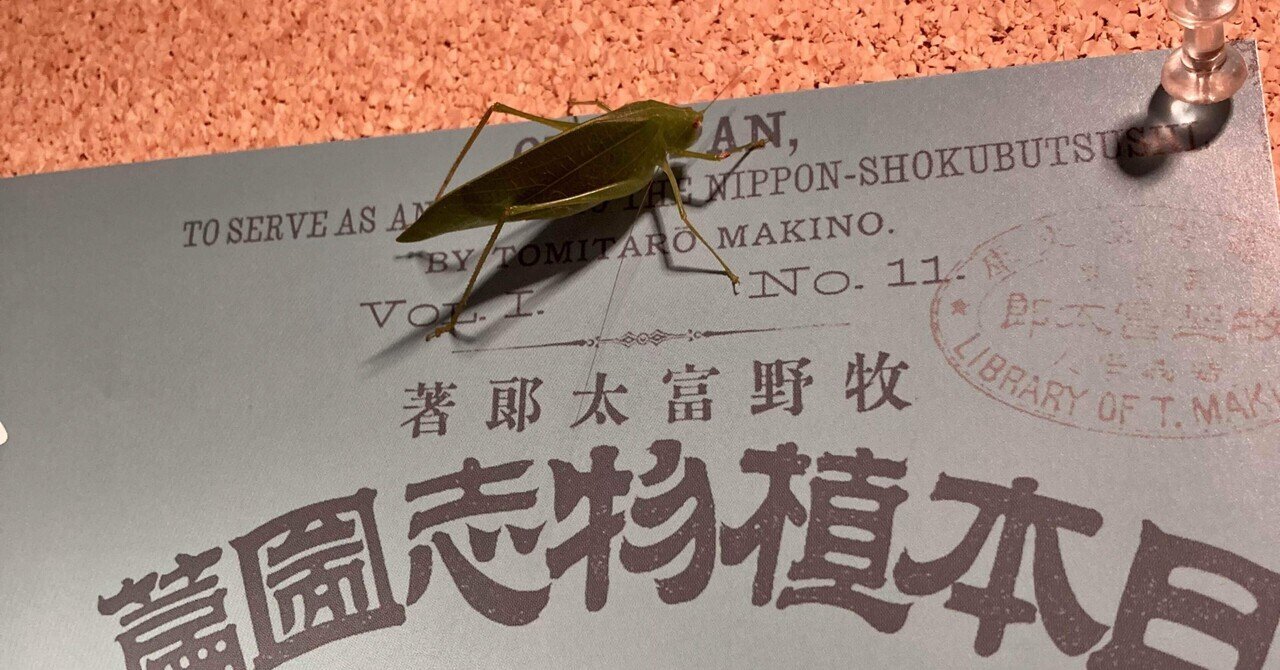 AN,
TO SERVE AS AN THE NIPPON-SHOKUBUTSUSHI,
BY TOMITARŌ MAKINO.
VOL. I. No. 11.
牧野富太郎著
日本植物志圖篇
LIBRARY OF T. MAK